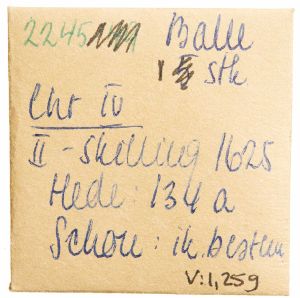 2245 Balle
1 stk
Chr IV
II - skilling 1625
Hede: 134 a
Schou: ik. bestem
V: 1,25g